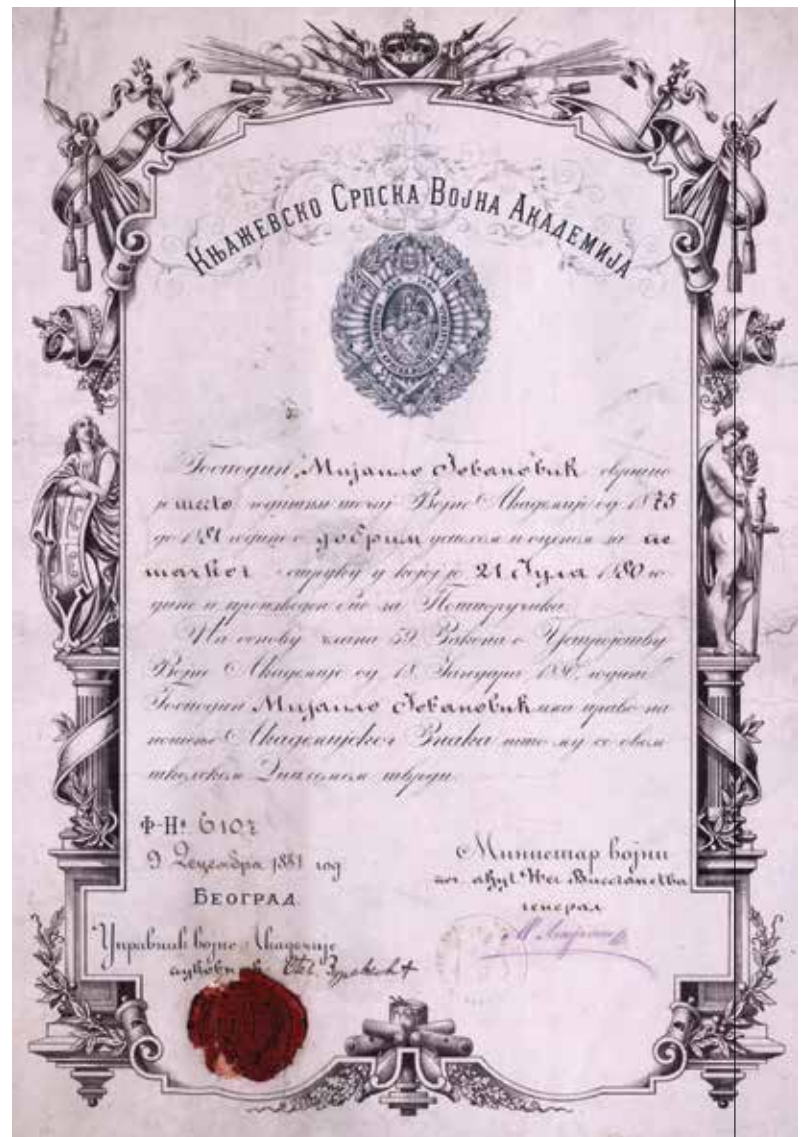 Књажевско Српска Војна Академија
Господин Мијаило Јовановић свршио
је шесто годишњи течај Војне Академије од 1875
до 1881 године с добрим успехом и оценом за
струку у којој је 21 Јула 1880 го-
дине и произведен био за Потпоручика.
На основу члана 59 Закона о Устројству
Војне Академије од 18 Јануара 1880 године
Господин Мијаило Јовановић има право на
ношење Академијског Знака што му се овом
школском Дипломом тврди.
Ф-Нº
9 Децембра 1881 год
БЕОГРАД.
Министар војни
генерал
Управник војне Академије